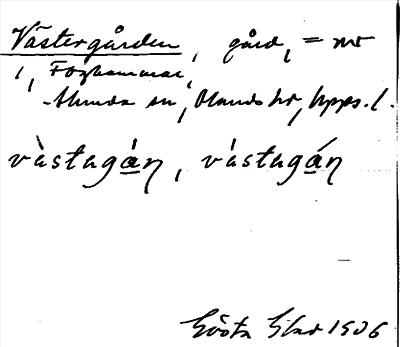 Västergården, gård, = nr
1, Forkammar,
Ahunda sn, Olands hd, Upps. l.
vàstagá̲n, vástagá̲n
Gösta 1936